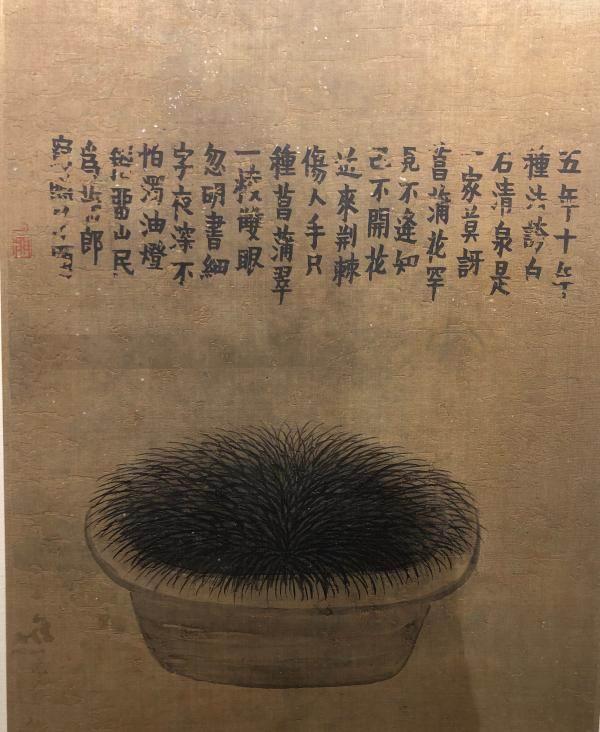 五年十年
種法誇白
石清泉是
一家莫訝
菖蒲花罕
見不逢知
己不開花
近來荆棘
傷人手只
種菖蒲翠
一眼
忽明書細
字夜深不
怕濁油燈
畱山民
爲郎